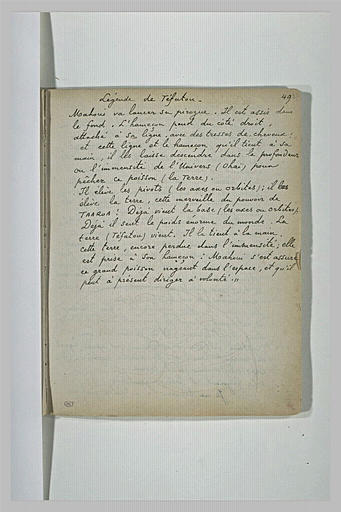 Légende de Téfutou.
49
Mahoui va lancer sa pirogue. Il est assis dans
le fond. L'hameçon pend du côté droit,
attaché à sa ligne, avec des tresses de cheveux;
et cette ligne et le hameçon qu'il tient à sa
main, il les laisse descendre dans la profondeur
ou l'immensité de l'Univers (Ohaï) pour
pêcher ce poisson (la Terre).
Il élève les pivots (les axes ou orbites); il
élève la terre, cette merveille du pouvoir de
TAAROA! Déjà vient la base (les axes ou orbites)
Déjà il sent le poids énorme du monde. La
terre (Téfutou) vient. Il la tient à la main,
cette terre, encore perdue dans l'immensité; elle
est prise à son hameçon: Mahoui s'est assuré
ce grand poisson nageant dans l'espace, et qu'il
peut à présent diriger à volonté.